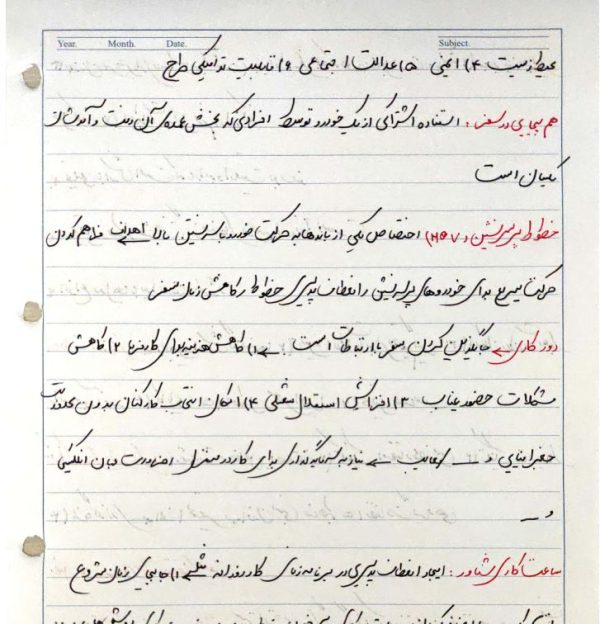 Year. Month. Date. Subject.
محیط زیست ۴) ایمنی ۵) عدالت اجتماعی ۶) قابلیت تو طرح
هم پیمایی در سفر : استفاده اشتراکی از یک خودرو توسط افرادی که بخش عمده‌ی آن رفت و آمدشان
یکسان است
خطوط پر سرنشین (HOV) اختصاص یکی از باندها به حرکت خودرو با سرنشین بالا اهداف فراهم کردن
حرکت سریع برای خودروهای پر سرنشین و انعطاف پذیری خطوط و کاهش زمان سفر
دورکاری ← جایگزین کردن سفر با ارتباطات است ← ۱) کاهش هزینه برای کارفرما ۲) کاهش
مشکلات حضور غیاب ۳) افزایش استقلال شغلی ۴) امکان انتخاب کارکنان بدون محدودیت
جغرافیایی و ... معایب ← نیاز به سرمایه گذاری برای کار در منزل، ضرورت
و ...
ساعت کاری شناور : ایجاد انعطاف پذیری در برنامه زمانی کار روزانه ← ۱) جابجایی زمان شروع